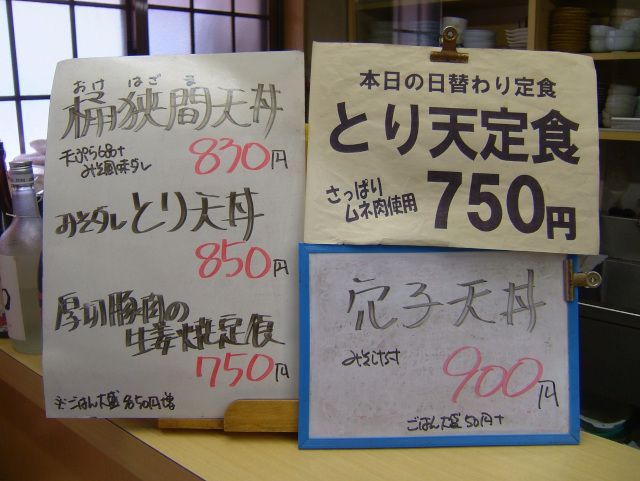 おけ はざ ま
桶狭間天丼
みそ風味ダレ
830円
みそダレとり天丼
850円
厚切豚肉の
生姜焼定食
750円
本日の日替わり定食
とり天定食
さっぱり
ムネ肉使用
750円
穴子天丼
900円
ごはん大盛50円+